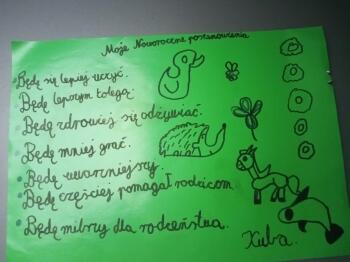 Moje Noworoczne postanowienia
Będę się lepiej uczyć.
Będę lepszym kolegą.
Będę zdrowiej się odżywiać.
Będę mniej grać.
Będę
Będę częściej pomagał rodzicom.
Będę milszy dla rodzeństwa.
Kuba.